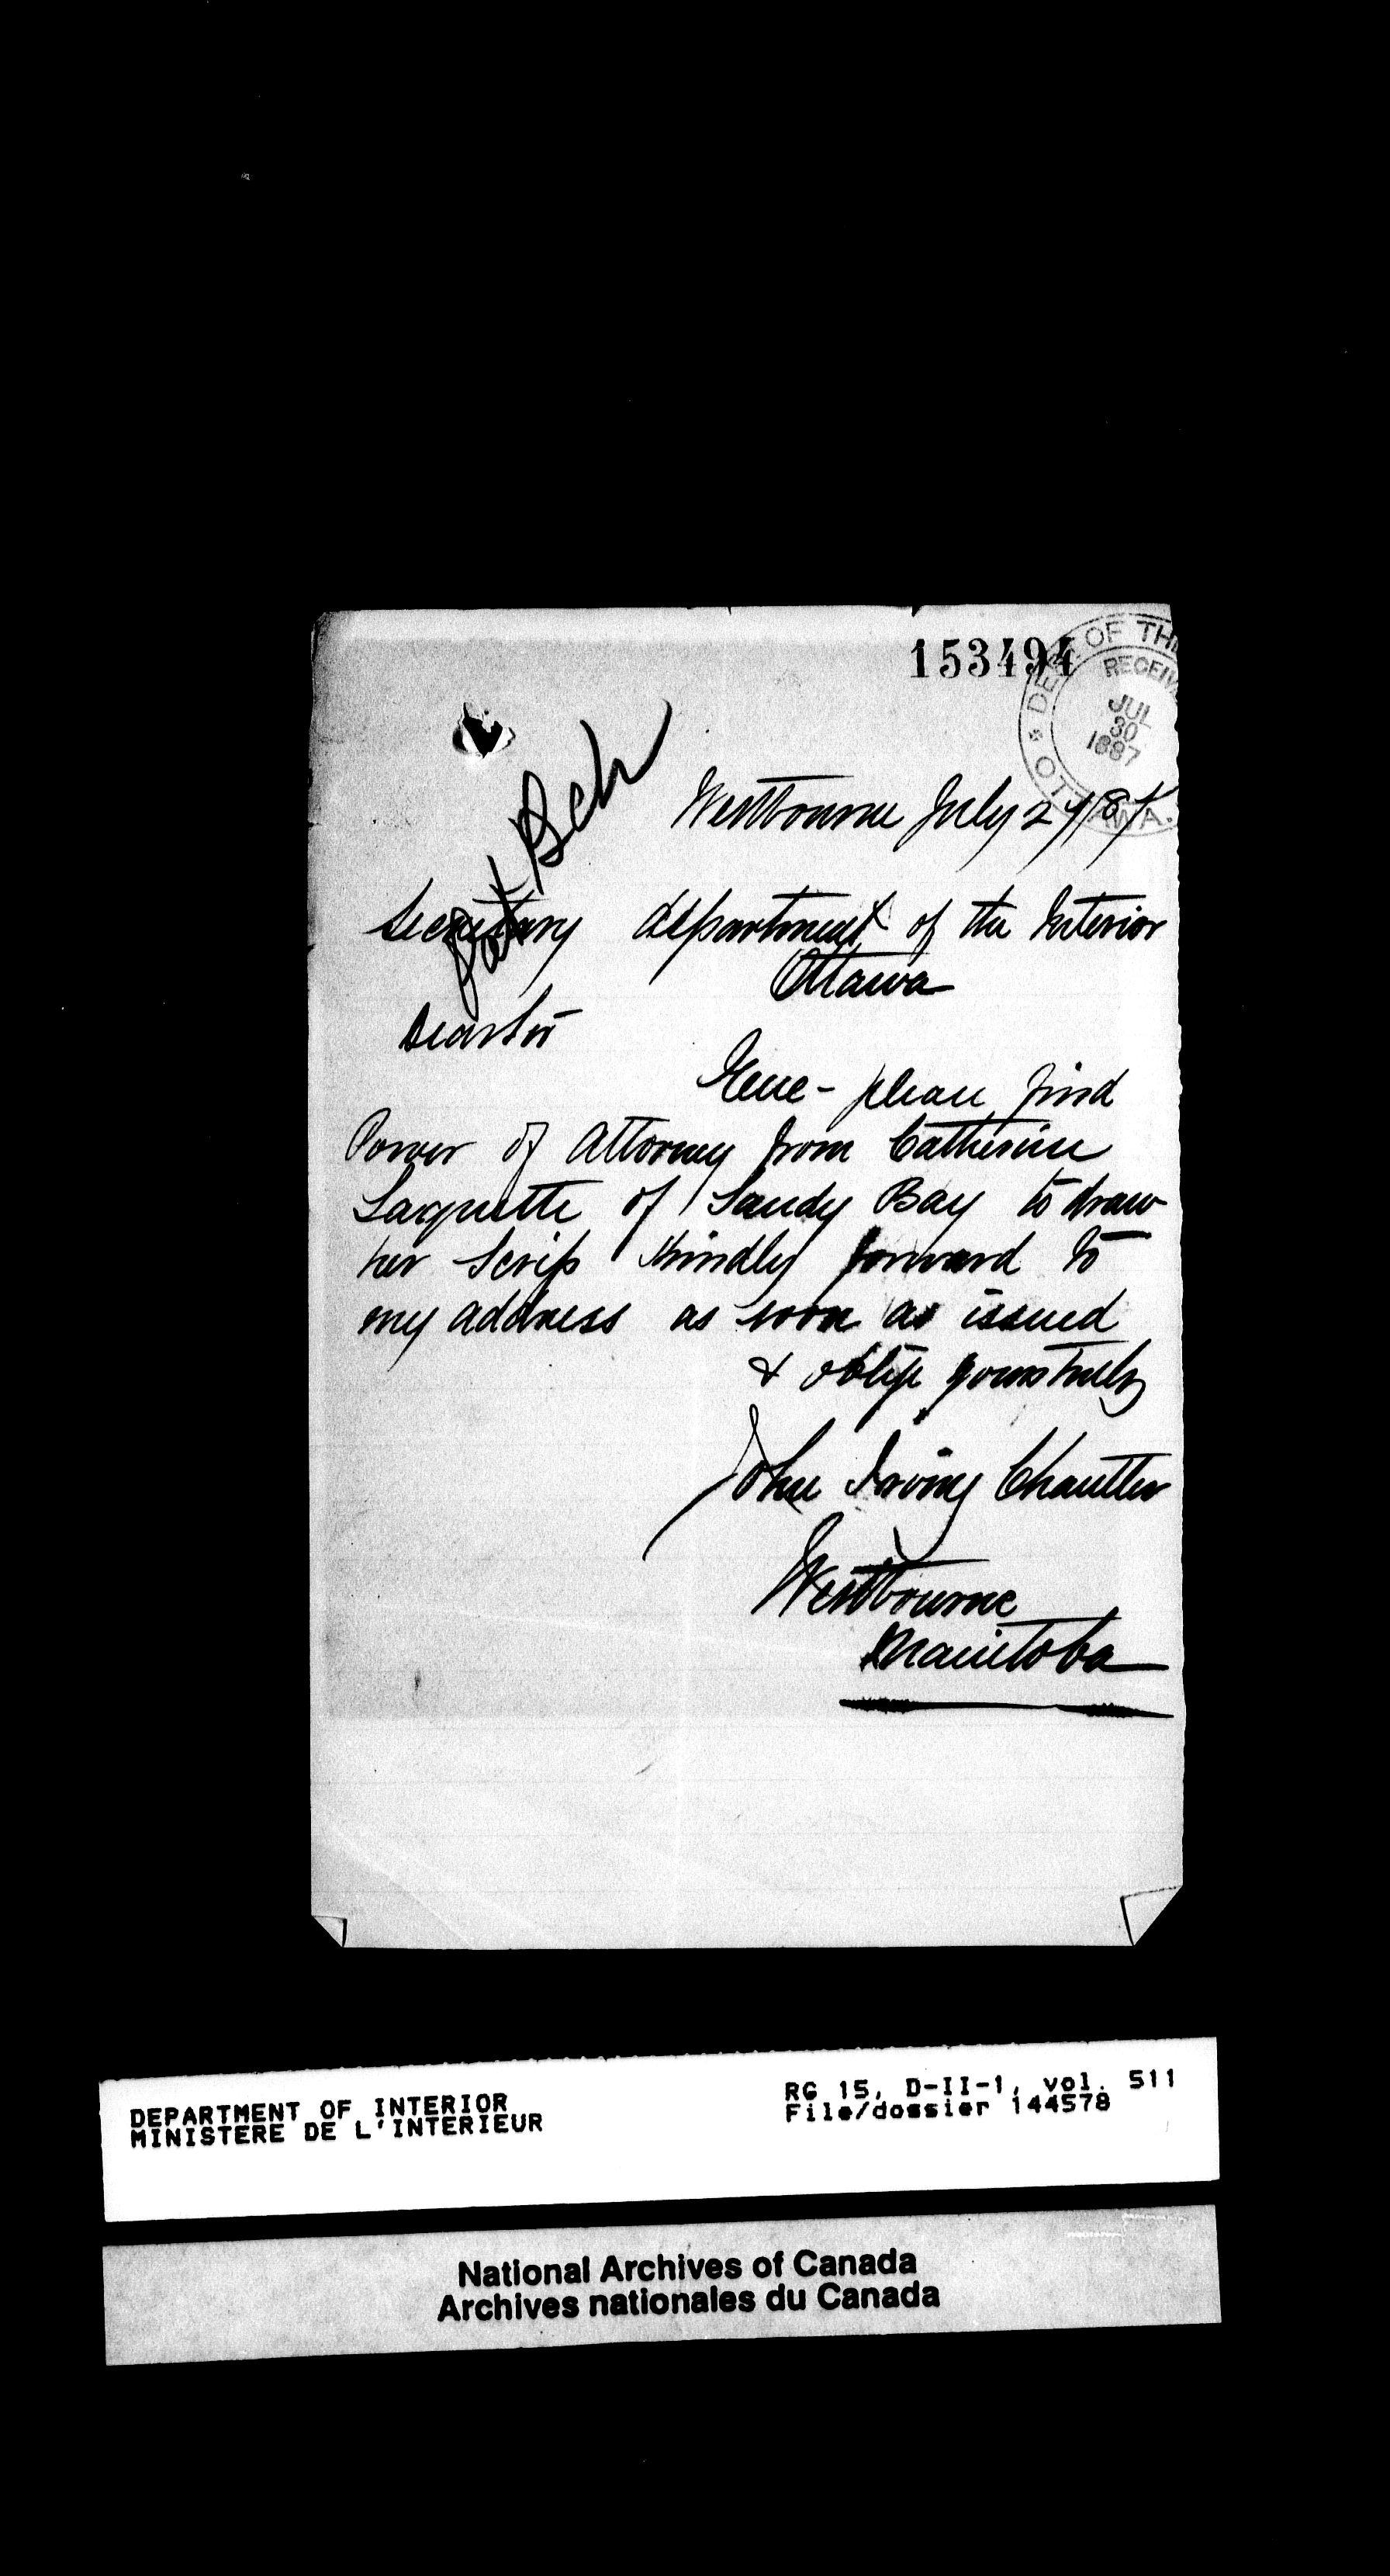 153494
DEPT. OF THE
RECEIV
JUL
30
1887
OTTAWA.
Pat Bch
Westbourne July 27/87
Secretary department of the Interior
Ottawa
Dear Sir
Here - please find
Power of Attorney from Catherine
Laquette of Sandy Bay to draw
her Scrip Kindly forward to
my address as soon as issued
& oblige yours truly
John Irving Chantler
Westbourne
Manitoba
DEPARTMENT OF INTERIOR
MINISTERE DE L'INTERIEUR
RG 15, D-II-1, vol. 511
File/dossier 144578
National Archives of Canada
Archives nationales du Canada